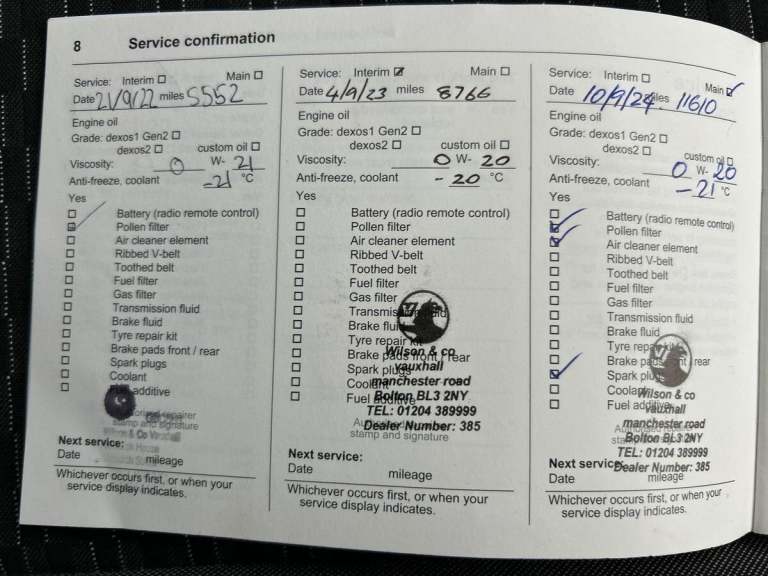 8 Service confirmation
Service: Interim ☐ Main ☐
Date 21/9/22 miles 5552
Engine oil
Grade: dexos1 Gen2 ☐
dexos2 ☐ custom oil ☐
Viscosity: 0 W- 21
Anti-freeze, coolant -21 °C
Yes
☐ Battery (radio remote control)
☑ Pollen filter
☐ Air cleaner element
☐ Ribbed V-belt
☐ Toothed belt
☐ Fuel filter
☐ Gas filter
☐ Transmission fluid
☐ Brake fluid
☐ Tyre repair kit
☐ Brake pads front / rear
☐ Spark plugs
☐ Coolant
☐ Fuel additive
stamp and signature
Next service:
Date mileage
Whichever occurs first, or when your
service display indicates.
Service: Interim ☑ Main ☐
Date 4/9/23 miles 8766
Engine oil
Grade: dexos1 Gen2 ☐
dexos2 ☐ custom oil ☐
Viscosity: 0 W- 20
Anti-freeze, coolant - 20 °C
Yes
☐ Battery (radio remote control)
☐ Pollen filter
☐ Air cleaner element
☐ Ribbed V-belt
☐ Toothed belt
☐ Fuel filter
☐ Gas filter
☐ Transmission fluid
☐ Brake fluid
☐ Tyre repair kit
☐ Brake pads front / rear
☐ Spark plugs
☐ Coolant
☐ Fuel additive
Wilson & co
vauxhall
manchester road
Bolton BL3 2NY
TEL: 01204 389999
Dealer Number: 385
stamp and signature
Next service:
Date mileage
Whichever occurs first, or when your
service display indicates.
Service: Interim ☐ Main ☑
Date 10/9/24 miles 11610
Engine oil
Grade: dexos1 Gen2 ☐
dexos2 ☐ custom oil ☐
Viscosity: 0 W- 20
Anti-freeze, coolant -21 °C
Yes
☐ Battery (radio remote control)
☑ Pollen filter
☑ Air cleaner element
☐ Ribbed V-belt
☐ Toothed belt
☐ Fuel filter
☐ Gas filter
☐ Transmission fluid
☐ Brake fluid
☐ Tyre repair kit
☐ Brake pads front / rear
☑ Spark plugs
☐ Coolant
☐ Fuel additive
Wilson & co
vauxhall
manchester road
Bolton BL3 2NY
TEL: 01204 389999
Dealer Number: 385
Next service:
Date mileage
Whichever occurs first, or when your
service display indicates.